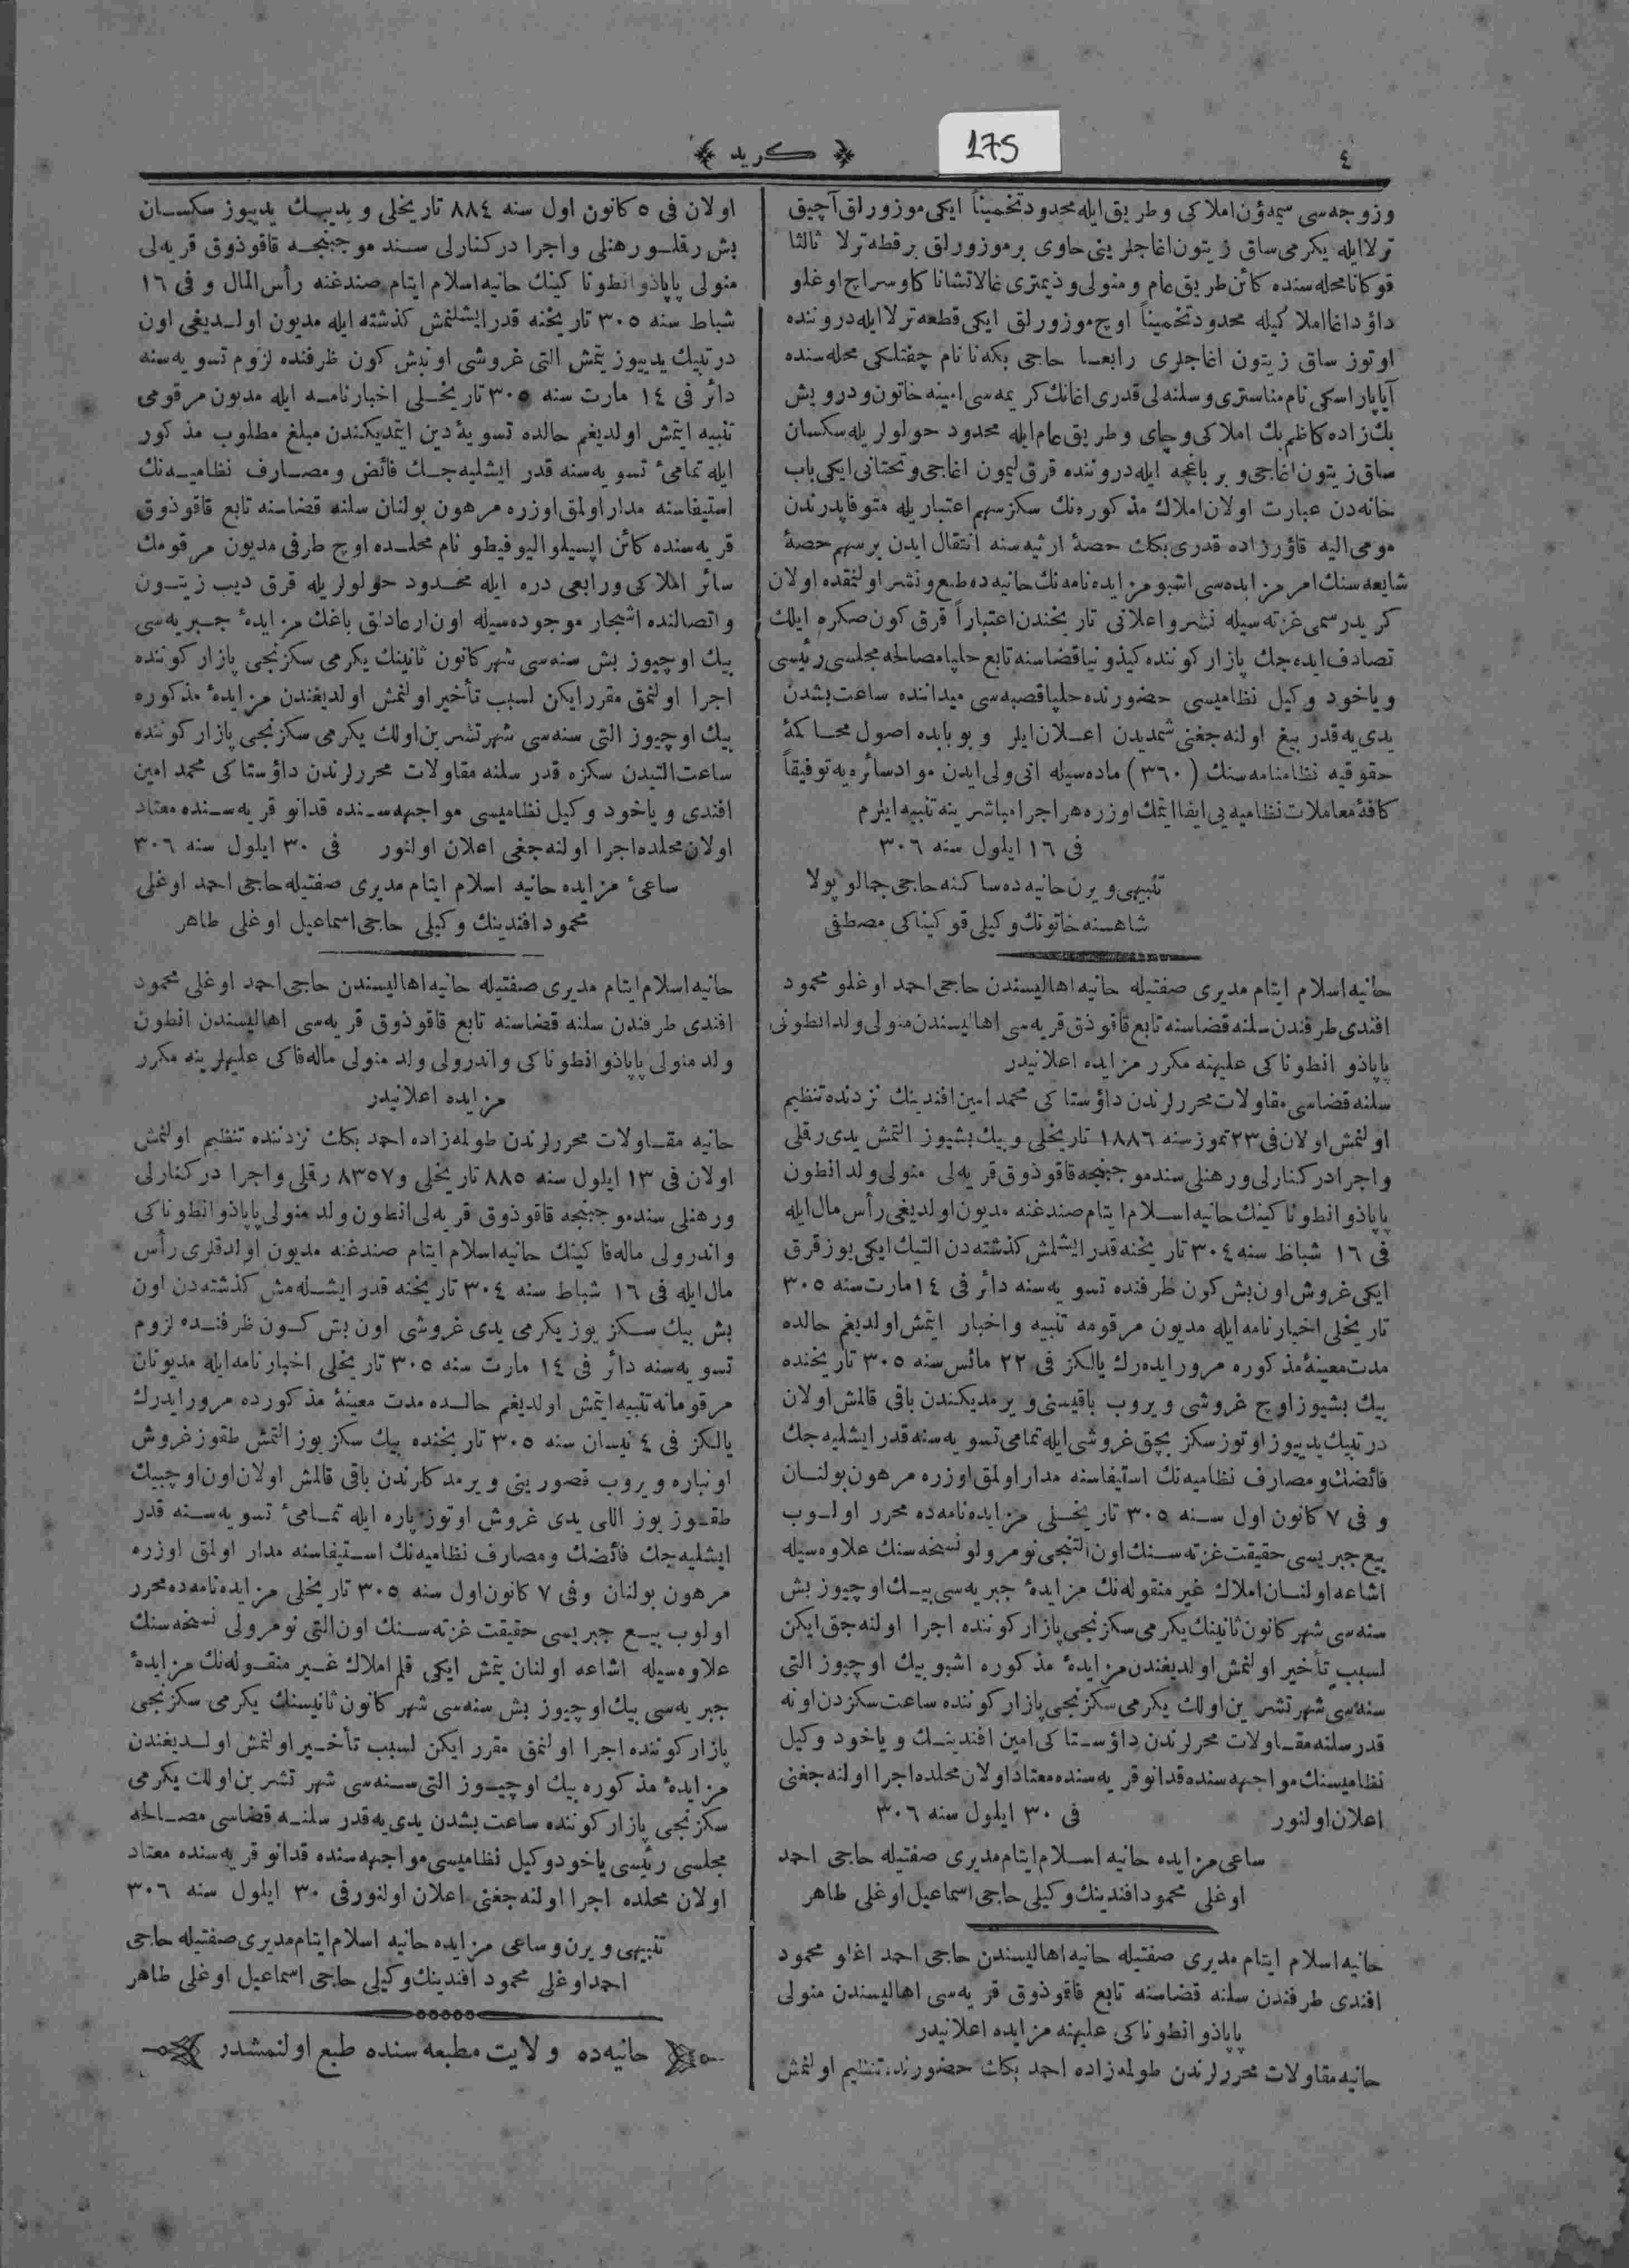 ٤
﴿ كريد ﴾
175
وزوجه‌سی سیمه‌ؤن املاکی وطریق ایله محدود تخمیناً ایکی موزورلق آچیق
ترلا ایله یکرمی ساق زیتون اغاجلرینی حاوی بر موزورلق برقطه ترلا ثالثا
قوکانا محله‌سنده کائن طریق عام ومنولی وذیمتری غالاتشانا کاوسراج اوغلو
داؤد اغا املاکیله محدود تخمیناً اوچ موزورلق ایکی قطعه ترلا ایله دروننده
اوتوز ساق زیتون اغاجلری رابعا حاجی بکه‌نا نام چفتلکی محله‌سنده
آیاپاراسکی نام مناستری وسلنه‌لی قدری اغانك کریمه‌سی امینه خاتون ودرویش
بك زاده کاظم بك املاکی وچای وطریق عام ایله محدود حولولریله سکسان
ساق زیتون اغاجی وبر باغچه ایله دروننده قرق لیمون اغاجی وتحتانی ایکی باب
خانه‌دن عبارت اولان املاك مذکوره‌نك سکز سهم اعتباریله متوفا پدرندن
مومی الیه قاؤرزاده قدری بکك حصهٔ ارثیه‌سنه انتقال ایدن برسهم حصهٔ
شایعه‌سنك امر مزایده‌سی اشبو مزایده‌نامه‌نك حانیه‌ده طبع ونشر اولنمقده اولان
کرید رسمی غزته‌سیله نشر واعلانی تاریخندن اعتباراً قرق کون صکره ایلك
تصادف ایده‌جك پازار کوننده کیذونیا قضاسنه تابع حلپا مصالحه مجلسی رئیسی
ویاخود وکیل نظامیسی حضورنده حلپا قصبه‌سی میداننده ساعت بشدن
یدی‌یه قدر بیغ اولنه‌جغنی شمدیدن اعلان ایلر وبوبابده اصول محاکمهٔ
حقوقیه نظامنامه‌سنك (٣٦٠) ماده‌سیله انی ولی ایدن مواد سائره‌یه توفیقاً
کافهٔ معاملات نظامیه‌یی ایفا ایتمك اوزره هر اجرا مباشرینه تنبیه ایلرم
فی ١٦ ایلول سنه ٣٠٦
تنبیهی ویرن حانیه‌ده ساکنه حاجی جمالوپولا
شاهسنه خاتونك وکیلی قوکیناکی مصطفی
حانیه اسلام ایتام مدیری صفتیله حانیه اهالیسندن حاجی احمد اوغلو محمود
افندی طرفندن سلنه قضاسنه تابع قاقوذق قریه‌سی اهالیسندن منولی ولد انطونی
پاپاذو انطوناکی علیهنه مکرر مزایده اعلانیدر
سلنه قضاسی مقاولات محررلرندن داؤستاکی محمد امین افندینك نزدنده تنظیم
اولنمش اولان فی ٢٣ تموز سنه ١٨٨٦ تاریخلی وبیك بشیوز التمش یدی رقلی
واجرا درکنارلی ورهنلی سند موجبنجه قاقوذوق قریه‌لی منولی ولد انطون
پاپاذو انطوناکینك حانیه اسلام ایتام صندغنه مدیون اولدیغی رأس مال ایله
فی ١٦ شباط سنه ٣٠٤ تاریخنه قدر ایشلمش کذشته‌دن التیك ایکی یوز قرق
ایکی غروش اون بش کون ظرفنده تسویه‌سنه دائر فی ١٤ مارت سنه ٣٠٥
تاریخلی اخبارنامه ایله مدیون مرقومه تنبیه واخبار ایتمش اولدیغم حالده
مدت معینهٔ مذکوره مرور ایده‌رك یالکز فی ٢٢ مائس سنه ٣٠٥ تاریخنده
بیك بشیوز اوچ غروشی ویروب باقیسنی ویرمدیکندن باقی قالمش اولان
درتبیك یدییوز اوتوز سکز بچق غروشی ایله تمامی تسویه‌سنه قدر ایشلیه‌جك
فائضك ومصارف نظامیه‌نك استیفاسنه مدار اولمق اوزره مرهون بولنان
و فی ٧ کانون اول سنه ٣٠٥ تاریخلی مزایده‌نامه‌ده محرر اولوب
بیع جبریسی حقیقت غزته‌سنك اون التنجی نومرولو نسخه‌سنك علاوه‌سیله
اشاعه اولنان املاك غیر منقوله‌نك مزایدهٔ جبریه‌سی بیك اوچیوز بش
سنه‌سی شهر کانون ثانینك یکرمی سکزنجی پازار کوننده اجرا اولنه‌جق ایکن
لسبب تأخیر اولنمش اولدیغندن مزایدهٔ مذکوره اشبو بیك اوچیوز التی
سنه‌سی شهر تشرین اولك یکرمی سکزنجی پازار کوننده ساعت سکزدن اونه
قدر سلنه مقاولات محررلرندن داؤستاکی امین افندینك ویاخود وکیل
نظامیسنك مواجهه‌سنده قدانو قریه‌سنده معتاد اولان محلده اجرا اولنه‌جغنی
اعلان اولنور فی ٣٠ ایلول سنه ٣٠٦
ساعی مزایده حانیه اسلام ایتام مدیری صفتیله حاجی احمد
اوغلی محمود افندینك وکیلی حاجی اسماعیل اوغلی طاهر
حانیه اسلام ایتام مدیری صفتیله حانیه اهالیسندن حاجی احمد اغلو محمود
افندی طرفندن سلنه قضاسنه تابع قاقوذوق قریه‌سی اهالیسندن منولی
پاپاذو انطوناکی علیهنه مزایده اعلانیدر
حانیه مقاولات محررلرندن طولمه‌زاده احمد بکك حضورنده تنظیم اولنمش
اولان فی ٥ کانون اول سنه ٨٨٤ تاریخلی ویدیبیك یدییوز سکسان
بش رقلو رهنلی واجرا درکنارلی سند موجبنجه قاقوذوق قریه‌لی
منولی پاپاذو انطوناکینك حانیه اسلام ایتام صندغنه رأس المال وفی ١٦
شباط سنه ٣٠٥ تاریخنه قدر ایشلنمش کذشته ایله مدیون اولدیغی اون
درتبیك یدییوز یتمش التی غروشی اونبش کون ظرفنده لزوم تسویه‌سنه
دائر فی ١٤ مارت سنه ٣٠٥ تاریخلی اخبارنامه ایله مدیون مرقومی
تنبیه ایتمش اولدیغم حالده تسویهٔ دین ایتمدیکندن مبلغ مطلوب مذکور
ایله تمامیٔ تسویه‌سنه قدر ایشلیه‌جك فائض ومصارف نظامیه‌نك
استیفاسنه مدار اولمق اوزره مرهون بولنان سلنه قضاسنه تابع قاقوذوق
قریه‌سنده کائن اپسیلو الیوفیطو نام محلده اوچ طرفی مدیون مرقومك
سائر املاکی ورابعی دره ایله محدود حولولریله قرق دیب زیتون
واتصالنده اشجار موجوده‌سیله اون ارغادلق باغك مزایدهٔ جبریه‌سی
بیك اوچیوز بش سنه‌سی شهر کانون ثانینك یکرمی سکزنجی پازار کوننده
اجرا اولنمق مقرر ایکن لسبب تأخیر اولنمش اولدیغندن مزایدهٔ مذکوره
بیك اوچیوز التی سنه‌سی شهر تشرین اولك یکرمی سکزنجی پازار کوننده
ساعت التیدن سکزه قدر سلنه مقاولات محررلرندن داؤستاکی محمد امین
افندی ویاخود وکیل نظامیسی مواجهه‌سنده قدانو قریه‌سنده معتاد
اولان محلده اجرا اولنه‌جغی اعلان اولنور فی ٣٠ ایلول سنه ٣٠٦
ساعیٔ مزایده حانیه اسلام ایتام مدیری صفتیله حاجی احمد اوغلی
محمود افندینك وکیلی حاجی اسماعیل اوغلی طاهر
حانیه اسلام ایتام مدیری صفتیله حانیه اهالیسندن حاجی احمد اوغلی محمود
افندی طرفندن سلنه قضاسنه تابع قاقوذوق قریه‌سی اهالیسندن انطون
ولد منولی پاپاذو انطوناکی واندرولی ولد منولی ماله‌فاکی علیهلرینه مکرر
مزایده اعلانیدر
حانیه مقاولات محررلرندن طولمه‌زاده احمد بکك نزدنده تنظیم اولنمش
اولان فی ١٣ ایلول سنه ٨٨٥ تاریخلی و٨٣٥٧ رقلی واجرا درکنارلی
ورهنلی سند موجبنجه قاقوذوق قریه‌لی انطون ولد منولی پاپاذو انطوناکی
واندرولی ماله‌فاکینك حانیه اسلام ایتام صندغنه مدیون اولدقلری رأس
مال ایله فی ١٦ شباط سنه ٣٠٤ تاریخنه قدر ایشله‌مش کذشته‌دن اون
بش بیك سکز یوز یکرمی یدی غروشی اون بش کون ظرفنده لزوم
تسویه‌سنه دائر فی ١٤ مارت سنه ٣٠٥ تاریخلی اخبارنامه ایله مدیونان
مرقومانه تنبیه ایتمش اولدیغم حالده مدت معینهٔ مذکورده مرور ایدرك
یالکز فی ٤ نیسان سنه ٣٠٥ تاریخنده بیك سکز یوز التمش طقوز غروش
اونپاره ویروب قصورینی ویرمدکارندن باقی قالمش اولان اون اوچبیك
طقوز یوز اللی یدی غروش اوتوز پاره ایله تمامیٔ تسویه‌سنه قدر
ایشلیه‌جك فائضك ومصارف نظامیه‌نك استیفاسنه مدار اولمق اوزره
مرهون بولنان وفی ٧ کانون اول سنه ٣٠٥ تاریخلی مزایده‌نامه‌ده محرر
اولوب بیع جبریسی حقیقت غزته‌سنك اون التی نومرولی نسخه‌سنك
علاوه‌سیله اشاعه اولنان یتمش ایکی قلم املاك غیر منقوله‌نك مزایدهٔ
جبریه‌سی بیك اوچیوز بش سنه‌سی شهر کانون ثانیسنك یکرمی سکزنجی
پازار کوننده اجرا اولنمق مقرر ایکن لسبب تأخیر اولنمش اولدیغندن
مزایدهٔ مذکوره بیك اوچیوز التی سنه‌سی شهر تشرین اولك یکرمی
سکزنجی پازار کوننده ساعت بشدن یدی‌یه قدر سلنه قضاسی مصالحه
مجلسی رئیسی یاخود وکیل نظامیسی مواجهه‌سنده قدانو قریه‌سنده معتاد
اولان محلده اجرا اولنه‌جغنی اعلان اولنور فی ٣٠ ایلول سنه ٣٠٦
تنبیهی ویرن وساعی مزایده حانیه اسلام ایتام مدیری صفتیله حاجی
احمد اوغلی محمود افندینك وکیلی حاجی اسماعیل اوغلی طاهر
حانیه‌ده ولایت مطبعه‌سنده طبع اولنمشدر